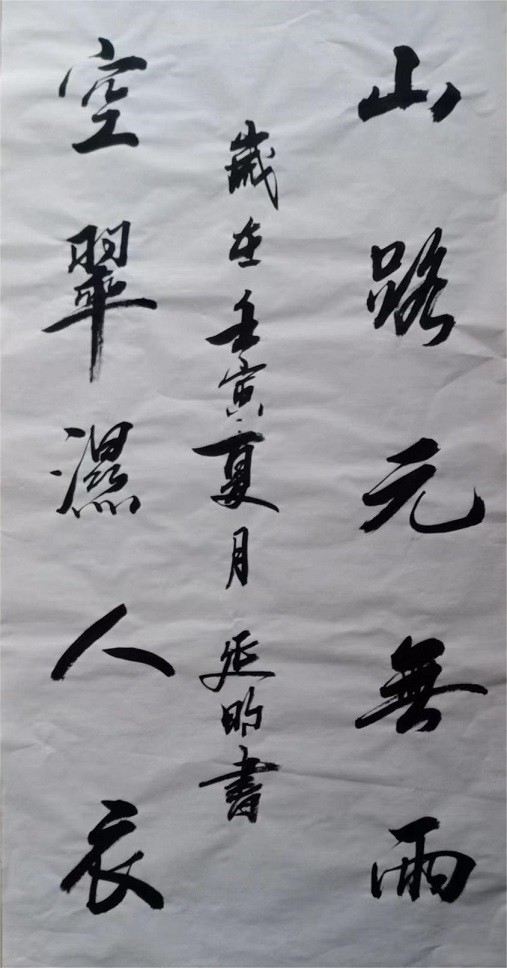 山路元無雨
空翠濕人衣
歲在壬寅夏月 延昀書